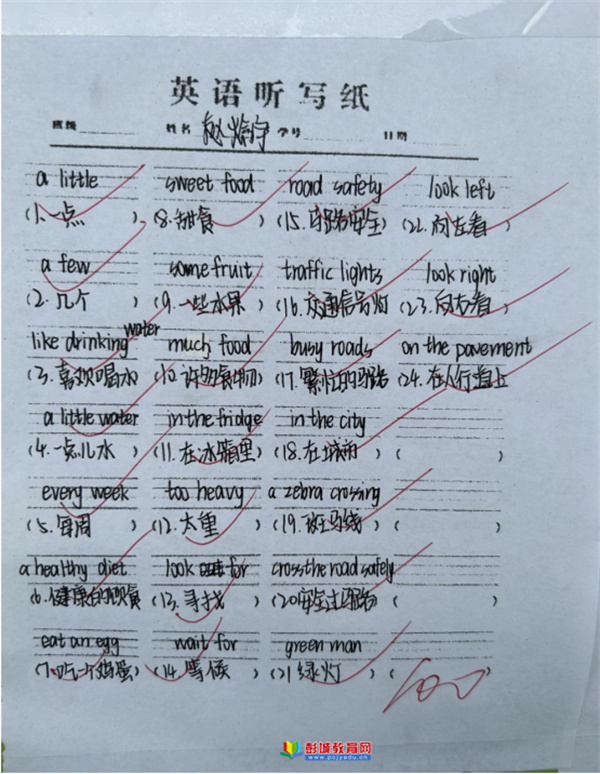 英语听写纸
班级 姓名 学号 日期
a little sweet food road safety look left
(1.一点) (8.甜食) (15.马路安全) (22.向左看)
a few some fruit traffic lights look right
(2.几个) (9.一些水果) (16.交通信号灯) (23.向右看)
like drinking water much food busy roads on the pavement
(3.喜欢喝水) (10.许多食物) (17.繁忙的马路) (24.在人行道上
a little water in the fridge in the city
(4.一点儿水) (11.在冰箱里) (18.在城市) ( )
every week too heavy a zebra crossing
(5.每周) (12.太重) (19.斑马线) ( )
a healthy diet look for cross the road safely
(6.健康的饮食 (13.寻找) (20安全过马路) ( )
eat an egg wait for green man
(7.吃一个鸡蛋) (14.等候) (21绿灯) ( )
100
彭城教育网
www.pcjyedu.cn